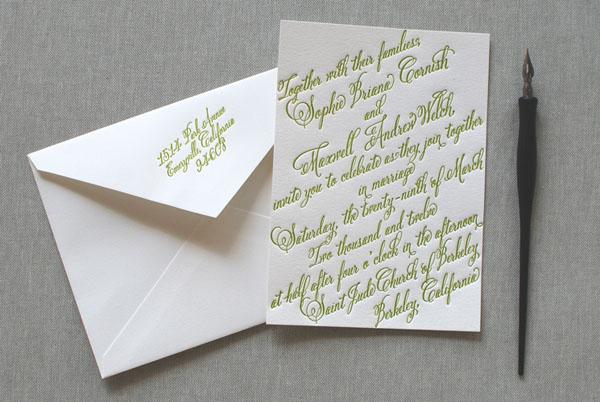 1514 Park Avenue
Emeryville, California
94608
Together with their families,
Sophie Briana Cornish
and
Maxwell Andrew Welch
invite you to celebrate as they join together
in marriage
Saturday, the twenty-ninth of March
Two thousand and twelve
at half after four o'clock in the afternoon
Saint Jude Church of Berkeley
Berkeley, California